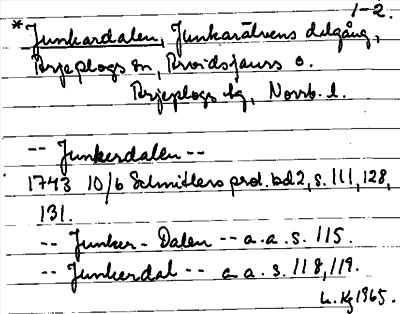 1-2.
* Junkardalen, Junkarälvens dalgång,
Arjeplogs sn, Arvidsjaurs o.
Arjeplogs tg, Norrb. l.
-- Junkerdalen --
1743 10/6 Schnitlers prot. bd 2, s. 111, 128,
131.
-- Junker-Dalen -- a.a. s. 115.
-- Junkerdal -- a.a. s. 118, 119.
1965.